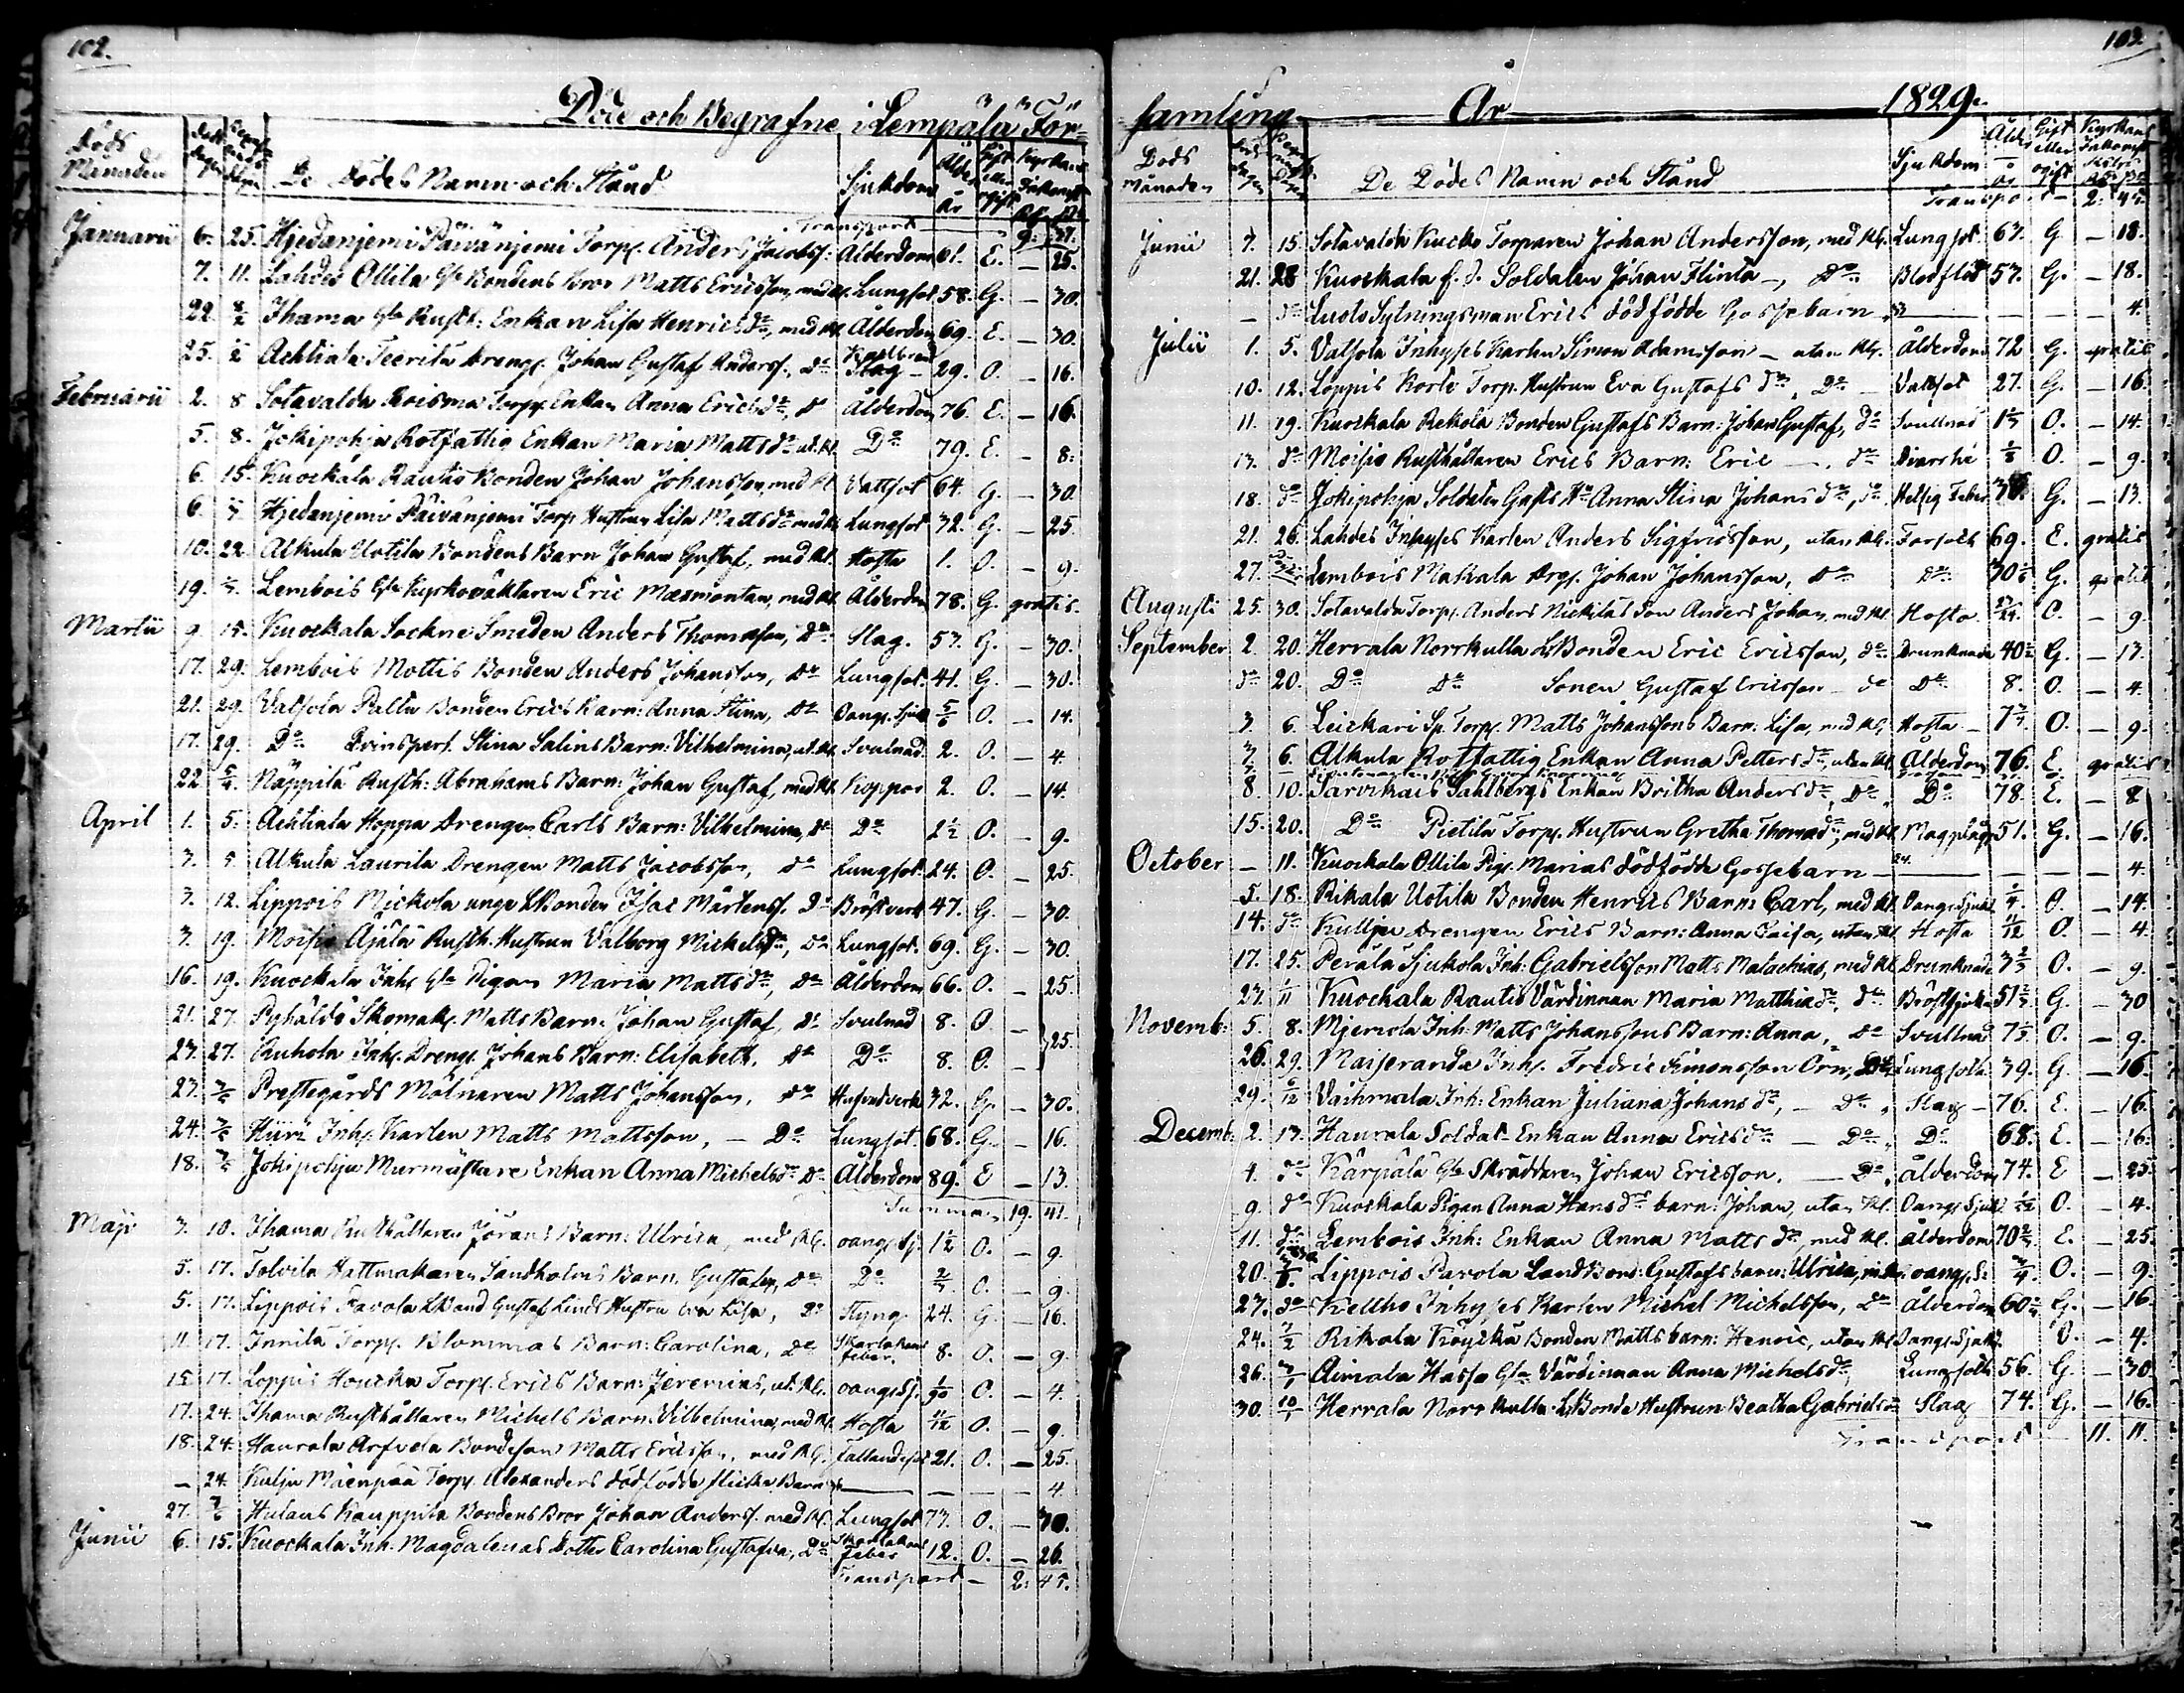 102.
Döde och Begrafne i Lempälä För-
Döds Månaden Döds dagen Begrafnings dagen De Dödes Namn och Stånd Sjukdom Ålder år Gift eller ogift Kyrkans Inkomst
Transport 9. 37.
Januarii 6. 25. Hjedanjemi Päivänjemi Torp. Anders Jacobss: Ålderdom 61. E. — 25.
7. 11. Lahdes Ollila Gle Bondens Bror Matts Ericsson, med Kl. Lungsot 58. G. — 30.
22. 8/2 Ihama Gle Rusth: Enkan Lisa Henricsdr, med Kl. Ålderdom 69. E. — 30.
25. Achtiala Teerilä Dreng. Johan Gustaf Anderss., Do 29. O. — 16.
Februarii 2. 8 Sotavalda Roisma Torp. Enkan Anna Ericsdr, Do Ålderdom 76. E. — 16.
5. 8. Jokipohja Rotfattig Enkan Maria Mattsdr ut. Kl. Do 79. E. — 8.
6. 15. Kuockala Rautio Bonden Johan Johansson, med Kl Vattsot 64. G. — 30.
6. Hjedanjemi Päivänjemi Torp Hustrun Lisa Mattsdr med Kl Lungsot 32. G. — 25.
10. 22. Alkula Uotila Bondens Barn Johan Gustaf, med Kl. Hosta 1. O. — 9.
19. Lembois Gle Kyrkoväktaren Eric Masmontan, med Kl. Ålderdom 78. G. gratis.
Martii 9. 15. Kuockala Sockne Smeden Anders Thomasson, Do Slag. 53. G. — 30.
17. 29. Lembois Mottis Bonden Anders Johansson, Do Lungsot. 41. G. — 30.
21. 29. Valsola Palla Bonden Erics Barn: Anna Stina, Do Oang. Sjuk 5/6 O. — 14.
17. 29. Do Stina Salins Barn: Vilhelmina, ut. Kl. Svulnad 2. O. — 4
22 5/4. Näppilä Rusth: Abrahams Barn: Johan Gustaf, med Kl. Koppor 2. O. — 14.
April 1. 5. Achtiala Hoppa Drengen Carls Barn: Vilhelmina, Do Do 2½ O. — 9.
3. 5. Alkula Laurila Drengen Matts Jacobsson, Do Lungsot. 24. O. — 25.
3. 12. Lippois Mickola unge LBonden Isac Mårtenss. Do Bröstverk 47. G. — 30.
3. 19. Moisio Äjälä Rusth. Hustrun Valborg Michelsdr, Do Lungsot. 69. G. — 30.
16. 19. Kuockala Inh. Gle Pigan Maria Mattsdr, Do Ålderdom 66. O. — 25.
21. 27. Pyhäldö Skomak. Matts Barn: Johan Gustaf, Do Svulnad 8. O —
23. 27. Ruhola Inh. Dreng. Johans Barn: Elisabeth, Do Do 8. O. — 25.
27. 3/5 Prestegårds Mölnaren Matts Johansson, Do Hufvudverk 32. G. — 30.
24. 3/5 Hiirä Inh. Karlen Matts Mattsson, — Do Lungsot. 68. G. — 16.
18. 3/5 Jokipohja Murmästare Enkan Anna Michelsdr Do Ålderdom 89. E — 13.
Summan 19. 41.
Maji 3. 10. Ihama Rusthållaren Jörans Barn: Ulrica, med Kl. oang. Sj. 1½ O. — 9.
5. 17. Tolvila Hattmakaren Sandholms Barn. Gustafva, Do Do O. — 9.
5. 17. Lippois Pavola LBond Gustaf Linds Hustru Eva Lisa, Do Styng 24. G. — 16.
11. 17. Innilä Torp. Blommas Barn: Carolina, Do Skarlakans feber. 8. O. — 9.
15. 17. Loppis Houcka Torp. Erics Barn: Jeremias, ut. Kl. oang. Sj. O. — 4.
17. 24. Ihama Rusthållaren Michels Barn: Vilhelmina, med Kl. Hosta 11/12 O. — 9.
18. 24. Haurala Arfvela Bondeson Matts Ericsson, med Kl. Fallandesot 21. O. — 25.
— 24. Kulju Mäenpää Torp. Alexanders dödfödde flicke Barn — — — 4.
27. 7/6 Hulaus Kauppila Bondens Bror Johan Anderss. med Kl. Lungsot 73. O. — 30.
Junii 6. 15. Kuockala Inh. Magdalenas Dotter Carolina Gustafva, Do Skarlakans Feber 12. O. — 26.
Transport — 2: 45.
103.
samling År 1829.
Döds Månaden Döds dagen De Dödes Namn och Stånd Sjukdom Ålder år Gift eller ogift Kyrkans Inkomst
Transport — 2. 45.
Junii 7. 15. Sotavalda Kucko Torparen Johan Andersson, med Kl. Lungsot. 63. G. — 18.
21. 28 Kuockala f. d. Soldaten Johan Flinta —, Do Blodflöd 57. G. — 18.
— do Luoto Sytningsman Erics dödfödde Gossebarn — — — 4.
Julii 1. 5. Valsola Inhyses Karlen Simon Adamsson — utan Kl. Ålderdom 72 G. gratis
10. 12. Loppis Korte Torp. Hustrun Eva Gustafsdr, Do — Vattsot 27. G. — 16.
11. 19. Kuockala Rekola Bonden Gustafs Barn: Johan Gustaf, do Svullnad O. — 14.
13. do Moisio Rusthållaren Erics Barn: Eric —, do Diarrhé O. — 9.
18. do Jokipohja Soldaten Gasts Ho Anna Stina Johansdr, do Hetsig Feber G. — 13.
21. 26. Lahdes Inhyses Karlen Anders Sigfridsson, utan Kl. Torsoth 69. E. gratis
27. Lembois Makala Drgs. Johan Johansson, Do Do G. gratis
Augusti 25. 30. Sotavalda Torp. Anders Nickilas Son Anders Johan, med Kl Hosta O. — 9.
September 2. 20. Herrala Norrkulla LBonden Eric Ericsson, do Drunknade G. — 13.
do 20. Do Do Sonen Gustaf Ericsson — do Do 8. O. — 4.
3. 6. Leickari Sp. Torp. Matts Johanssons Barn: Lisa, med Kl, Hosta — O. — 9.
3. 6. Alkula Rotfattig Enkan Anna Pettersdr, utan Kl Ålderdom 76. E. gratis
8. 10. Sarvikais Sahlbergs Enkan Britha Andersdr, Do Do 78. E. — 8
15. 20. Do Pietilä Torp. Hustrun Gretha Thomasdr, med Kl. Magplåga 51. G. — 16.
October — 11. Kuockala Ollila Pig. Marias dödfödde Gossebarn — — — 4.
5. 18. Rikala Uotila Bonden Henrics Barn: Carl, med Kl. Oang. Sjukd O. — 14.
14. do Kullju Drengen Erics Barn: Anna Caisa, utan Kl Hosta O. — 4.
17. 25. Perälä Sjukola Inh: Gabrielsson Matts Malachias, med Kl. Drunknade O. — 9.
27. 1/11 Kuockala Rautio Värdinnan Maria Matthiaedr, do Bröstsjuka G. — 30
Novemb: 5. 8. Mjerola Inh: Matts Johanssons Barn: Anna, Do Svullnad O. — 9.
26. 29. Maiseranda Inh. Fredric Simonsson Örn, Do Lungsoth 39. G. — 16.
29. 6/12 Vaihmala Inh: Enkan Juliana Johansdr, — Do Slag — 76. E. — 16.
Decemb: 2. 13. Haurala Soldat Enkan Anna Ericsdr — Do Do 68. E. — 16.
4. do Kärpälä Gle Skräddaren Johan Ericsson. — Do Ålderdom 74. E — 25.
9. do Kuockala Pigan Anna Hansdrs barn: Johan, utan Kl. Oang. Sjukd O. — 4.
11. Lembois Inh: Enkan Anna Mattsdr, med Kl. ålderdom E. — 25.
20. Lippois Pavola LandBond: Gustafs barn: Ulrica, m. Kl. oang. S: O. — 9.
27. do Kelltho Inhyses Karlen Michel Michelsson, Do ålderdom G. — 16.
24. Rikala Köyckä Bonden Matts barn: Henric, utan Kl Oang. Sjukd. O. — 4.
26. Aimala Hasso Gla Värdinnan Anna Michelsdr, Lungsoth 56. G. — 30
30. 10/1 Herrala Norrkulla LBonde Hustrun Beatha Gabrielsdr Slag 74. G. — 16.
Transport — 11. 11.